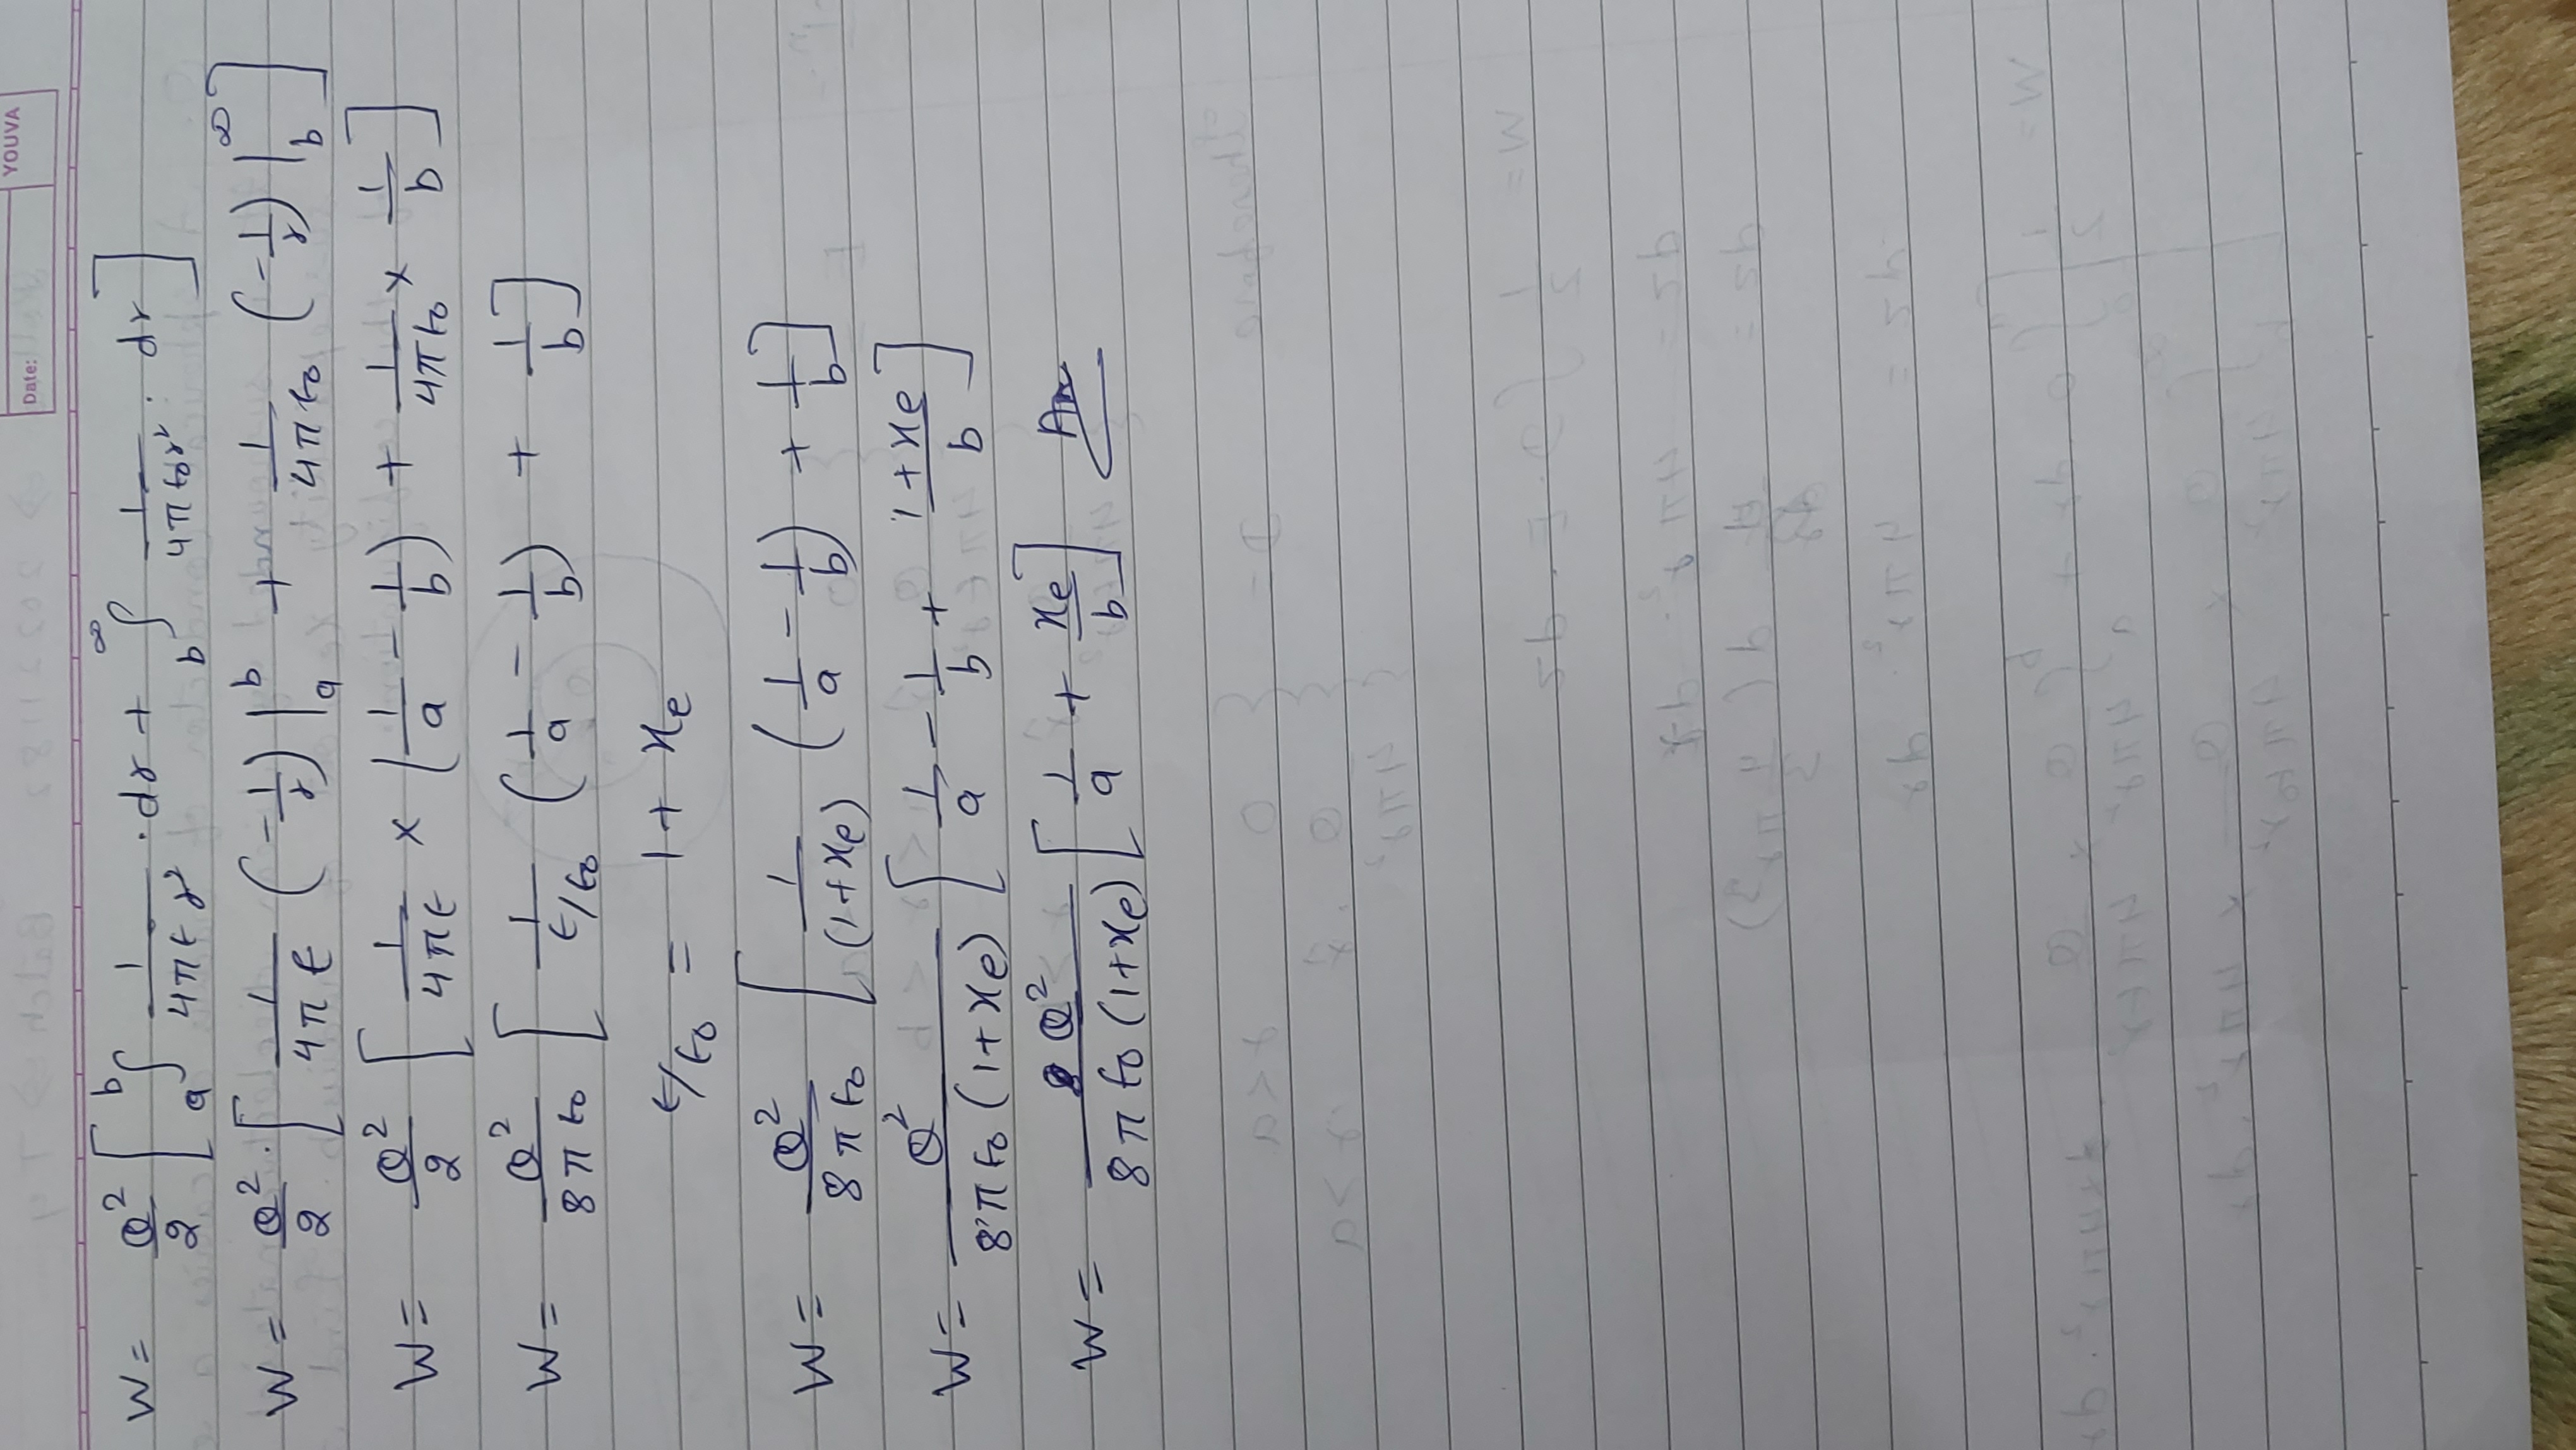 YOUVA
Date:
W = Q²/2 [ a∫b 1/4πϵr² · dr + b∫∞ 1/4πϵ₀r² · dr ]
W = Q²/2 · [ 1/4πϵ (-1/r) |ₐᵇ + 1/4πϵ₀ (-1/r) |b∞ ]
W = Q²/2 [ 1/4πϵ × (1/a - 1/b) + 1/4πϵ₀ × 1/b ]
W = Q²/8πϵ₀ [ 1/ϵ/ϵ₀ (1/a - 1/b) + 1/b ]
ϵ/ϵ₀ = 1 + χe
W = Q²/8πϵ₀ [ 1/(1+χe) (1/a - 1/b) + 1/b ]
W = Q²/8πϵ₀(1+χe) [ 1/a - 1/b + 1+χe/b ]
W = Q²/8πϵ₀(1+χe) [ 1/a + χe/b ] Ans